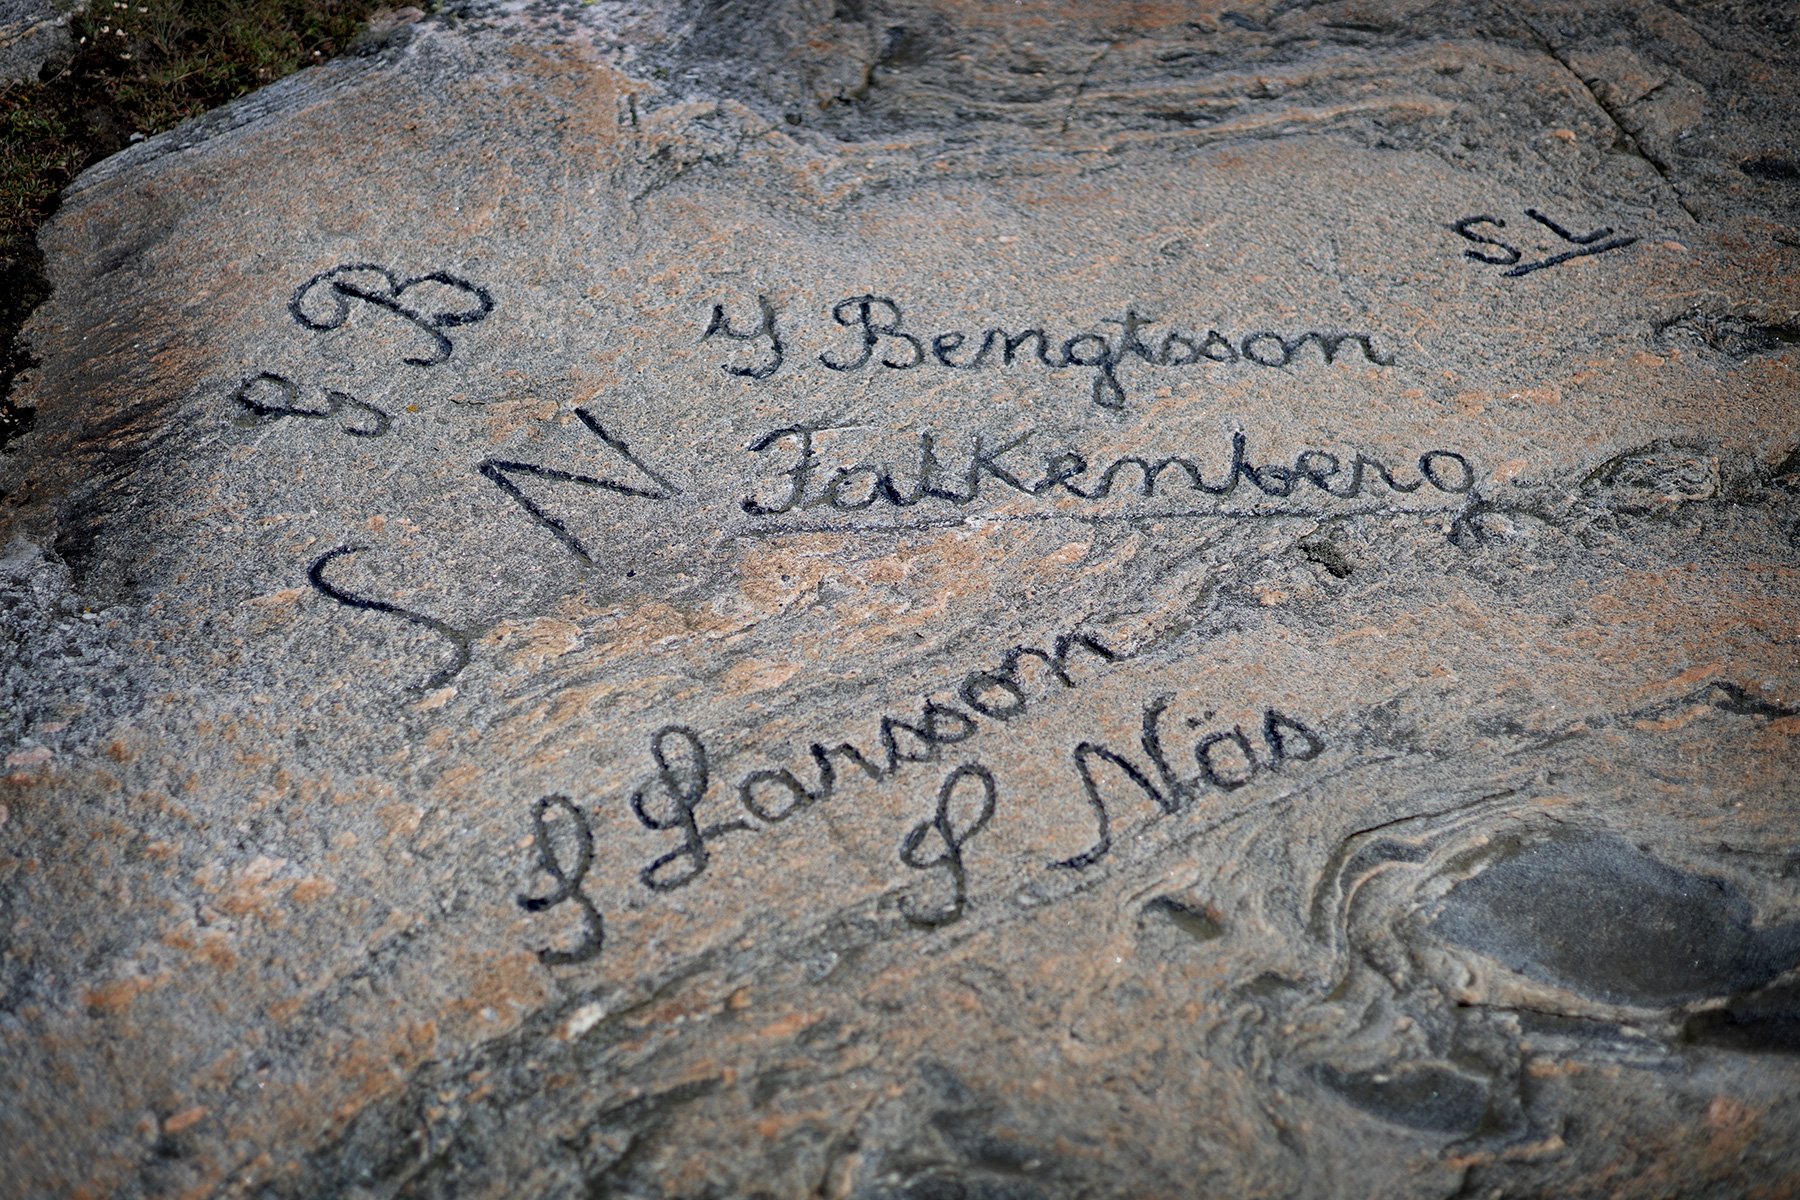 S.L
B
Y Bengtsson
es
S N
Falkenberg
S Larsson
S Näs